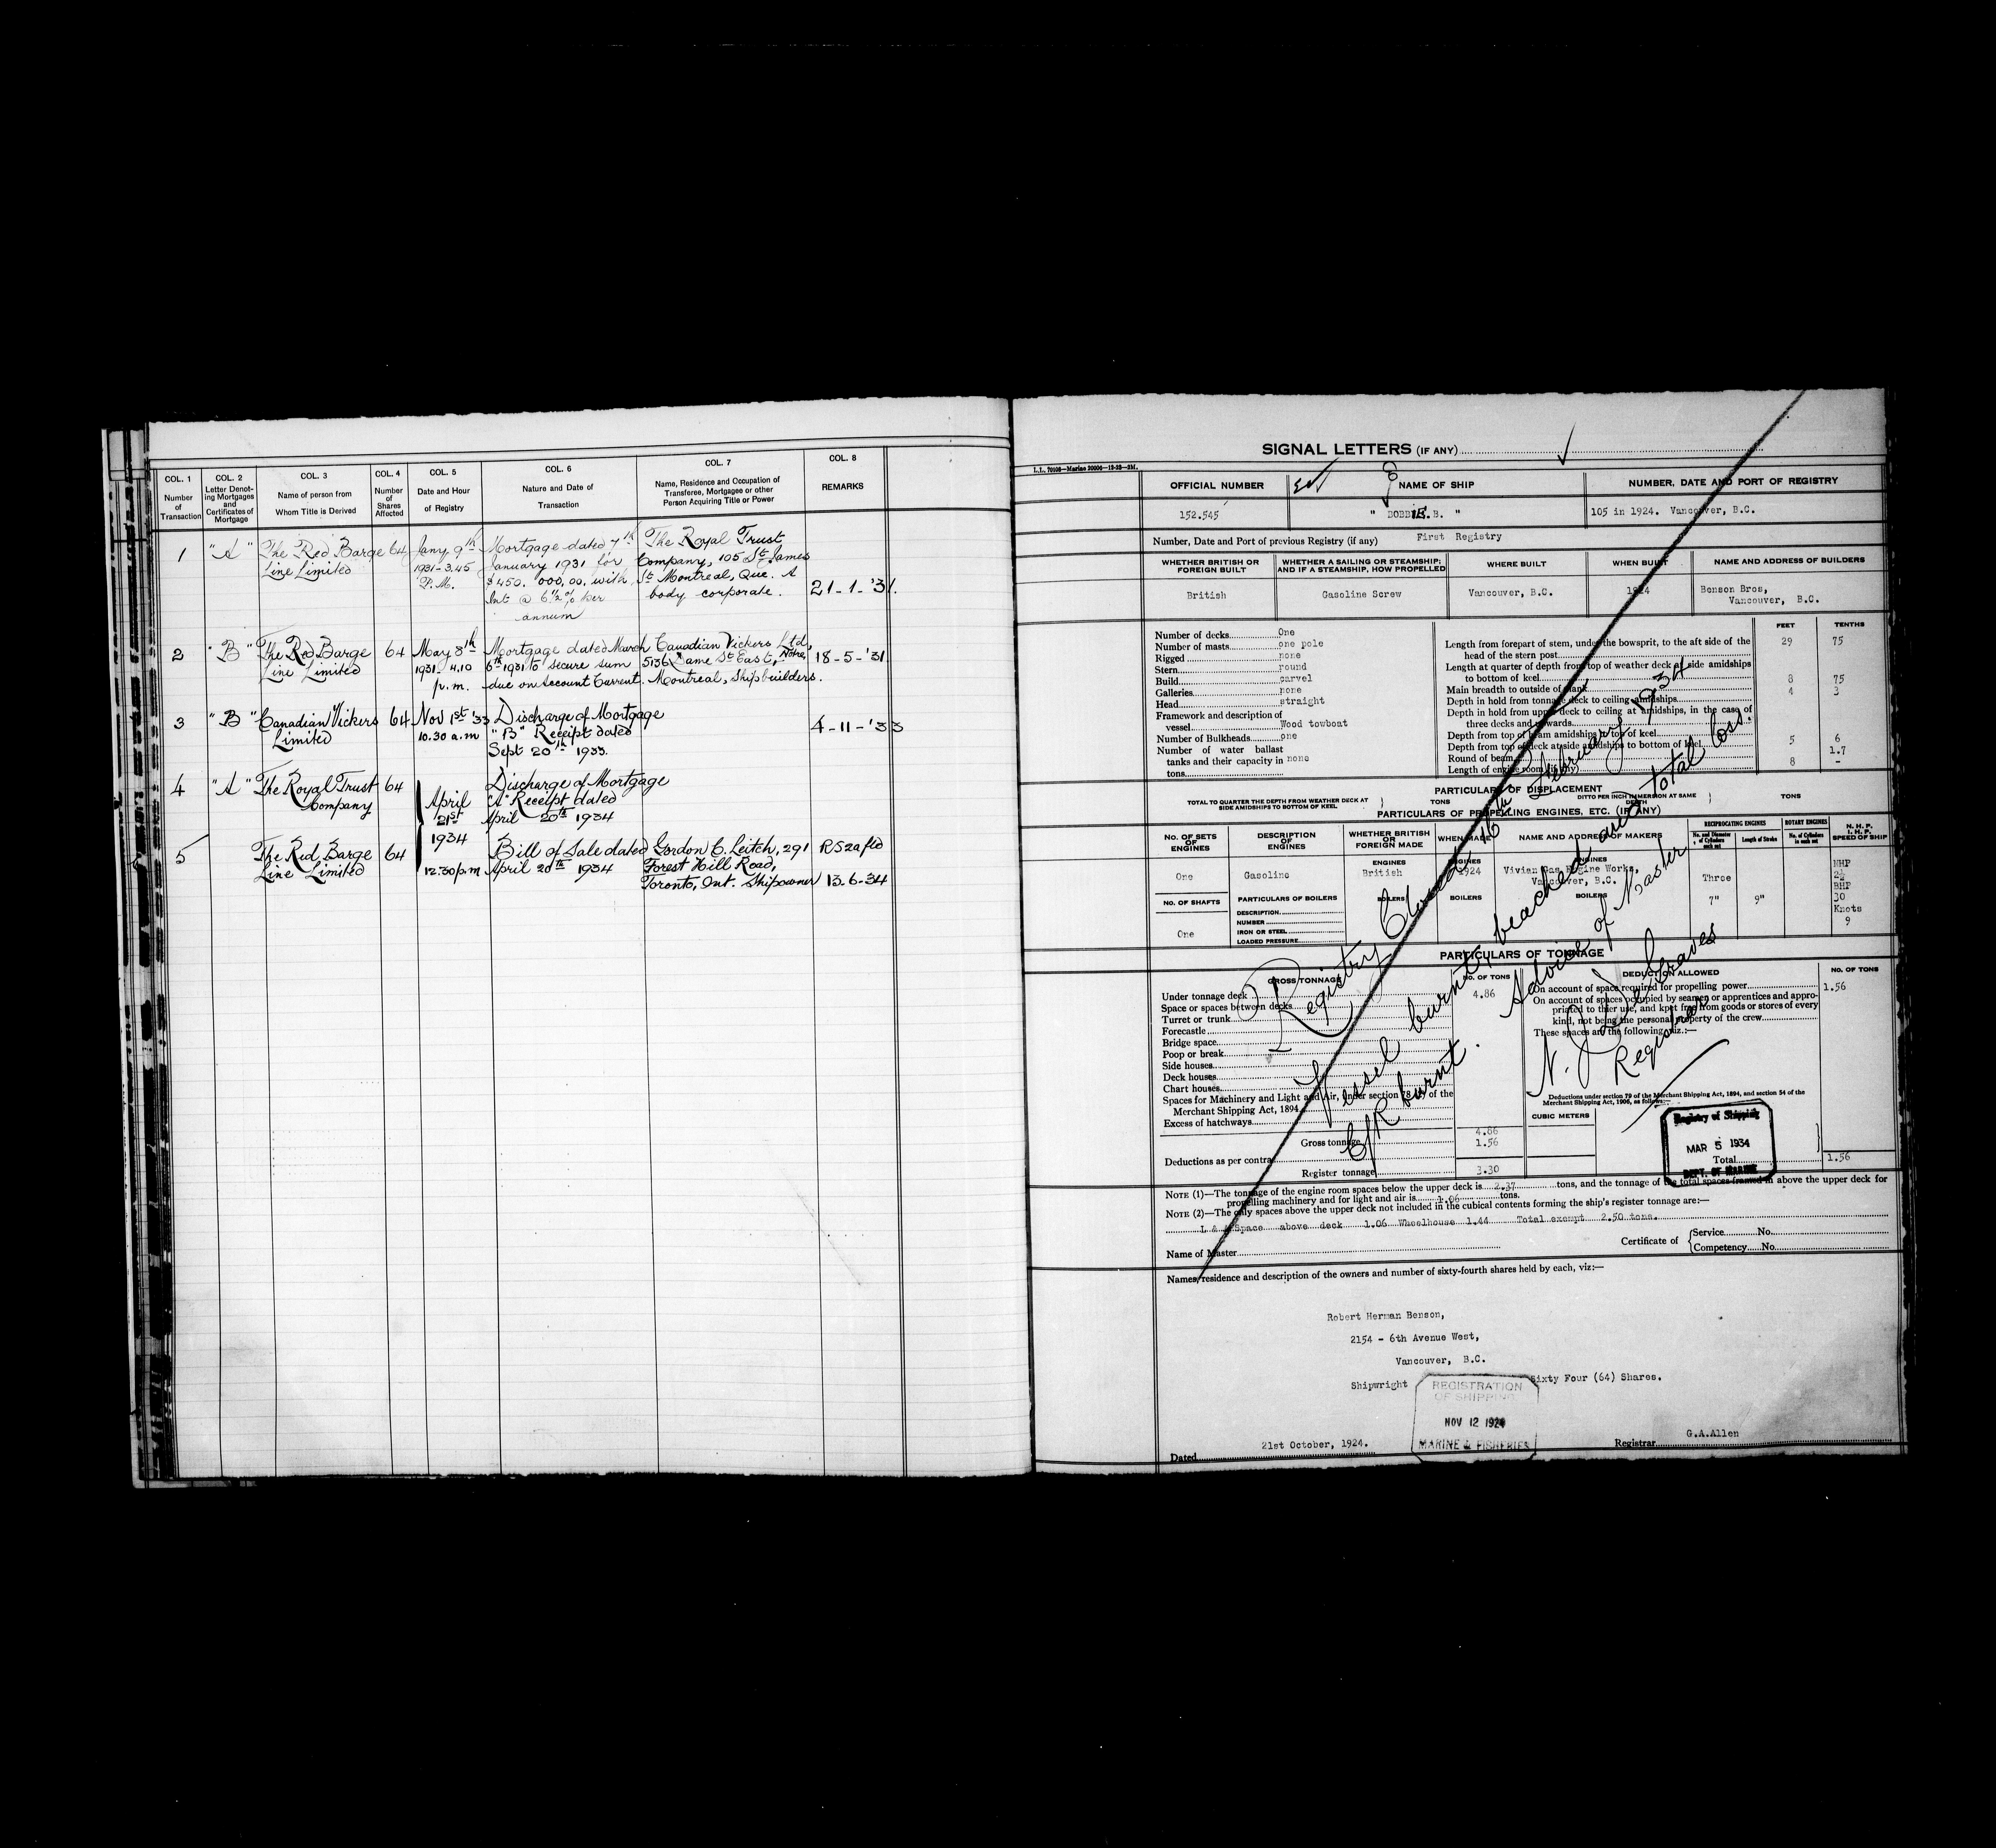 COL. 1
Number
of
Transaction
COL. 2
Letter Denot-
ing Mortgages
and
Certificates of
Mortgage
COL. 3
Name of person from
Whom Title is Derived
COL. 4
Number
of
Shares
Affected
COL. 5
Date and Hour
of Registry
COL. 6
Nature and Date of
Transaction
COL. 7
Name, Residence and Occupation of
Transferee, Mortgagee or other
Person Acquiring Title or Power
COL. 8
REMARKS
1
"A"
The Red Barge
Line Limited
64
Jany 9th
1931-3.45
P.M.
Mortgage dated 7th
January 1931 for
$450.000,00, with
Int @ 6½% per
annum
The Royal Trust
Company, 105 St James
St Montreal, Que. A
body corporate.
21-1-'31.
2
"B"
The Red Barge
Line Limited
64
May 8th
1931 4.10
p.m.
Mortgage dated March
6th 1931 to secure sum
due on Account Current.
Canadian Vickers Ltd,
5136 Notre Dame St East,
Montreal, Shipbuilders.
18-5-'31
3
"B"
Canadian Vickers
Limited
64
Nov 1st '33
10.30 a.m
Discharge of Mortgage
"B" Receipt dated
Sept 20th 1933.
4-11-'33
4
"A"
The Royal Trust
Company
64
April
21st
1934
Discharge of Mortgage
"A" Receipt dated
April 20th 1934
5
The Red Barge
Line Limited
64
12.30 p.m
Bill of Sale dated
April 20th 1934
Gordon C. Leitch, 291
Forest Hill Road,
Toronto, Ont. Shipowner
RS2a fld
13.6-34
SIGNAL LETTERS (IF ANY)
L.L. 70108—Marine 20006—12-23—2M.
OFFICIAL NUMBER
NAME OF SHIP
NUMBER, DATE AND PORT OF REGISTRY
152.545
" BOBBIE.B. "
105 in 1924. Vancouver, B.C.
Number, Date and Port of previous Registry (if any) First Registry
WHETHER BRITISH OR
FOREIGN BUILT
WHETHER A SAILING OR STEAMSHIP;
AND IF A STEAMSHIP, HOW PROPELLED
WHERE BUILT
WHEN BUILT
NAME AND ADDRESS OF BUILDERS
British
Gasoline Screw
Vancouver, B.C.
1924
Benson Bros,
Vancouver, B.C.
FEET TENTHS
Number of decks One
Number of masts one pole
Rigged none
Stern round
Build carvel
Galleries none
Head straight
Framework and description of
vessel Wood towboat
Number of Bulkheads one
Number of water ballast
tanks and their capacity in none
tons
Length from forepart of stem, under the bowsprit, to the aft side of the
head of the stern post 29 75
Length at quarter of depth from top of weather deck at side amidships
to bottom of keel
Main breadth to outside of plank 8 75
Depth in hold from tonnage deck to ceiling amidships 4 3
Depth in hold from upper deck to ceiling at amidships, in the case of
three decks and upwards
Depth from top of beam amidships to top of keel
Depth from top of deck at side amidships to bottom of keel 5 6
Round of beam 1.7
Length of engine room (if any) 8 -
PARTICULARS OF DISPLACEMENT
TOTAL TO QUARTER THE DEPTH FROM WEATHER DECK AT
SIDE AMIDSHIPS TO BOTTOM OF KEEL
TONS
DITTO PER INCH IMMERSION AT SAME
DEPTH
TONS
PARTICULARS OF PROPELLING ENGINES, ETC. (IF ANY)
No. OF SETS
OF
ENGINES
DESCRIPTION
OF
ENGINES
WHETHER BRITISH
OR
FOREIGN MADE
WHEN MADE
NAME AND ADDRESS OF MAKERS
RECIPROCATING ENGINES
No. and Diameter
of Cylinders
each set
Length of Stroke
ROTARY ENGINES
No. of Cylinders
in each set
N. H. P.
I. H. P.
SPEED OF SHIP
One
Gasoline
ENGINES
British
ENGINES
1924
ENGINES
Vivian Gas Engine Works,
Vancouver, B.C.
Three
7"
9"
NHP
2½
BHP
30
Knots
9
NO. OF SHAFTS
One
PARTICULARS OF BOILERS
DESCRIPTION
NUMBER
IRON OR STEEL
LOADED PRESSURE
BOILERS
BOILERS
BOILERS
PARTICULARS OF TONNAGE
GROSS TONNAGE
NO. OF TONS
DEDUCTION ALLOWED
NO. OF TONS
Under tonnage deck 4.86
Space or spaces between decks
Turret or trunk
Forecastle
Bridge space
Poop or break
Side houses
Deck houses
Chart houses
Spaces for Machinery and Light and Air, under section 78 (2) of the
Merchant Shipping Act, 1894
Excess of hatchways
Gross tonnage 4.86
Deductions as per contra 1.56
Register tonnage 3.30
On account of space required for propelling power 1.56
On account of spaces occupied by seamen or apprentices and appro-
priated to thier use, and kpet free from goods or stores of every
kind, not being the personal property of the crew
These spaces are the following, viz.:—
Deductions under section 79 of the Merchant Shipping Act, 1894, and section 54 of the
Merchant Shipping Act, 1906, as follows:—
CUBIC METERS
Total 1.56
Registry Closed 16th February 1934
Vessel burnt, beached and total loss.
C/R burnt. Advice of Master
Registrar
Registry of Shipping
MAR 5 1934
DEPT. OF MARINE
NOTE (1)—The tonnage of the engine room spaces below the upper deck is 2.37 tons, and the tonnage of the total spaces framed in above the upper deck for
propelling machinery and for light and air is 1.06 tons.
NOTE (2)—The only spaces above the upper deck not included in the cubical contents forming the ship's register tonnage are:—
L & A Space above deck 1.06 Wheelhouse 1.44 Total exempt 2.50 tons.
Name of Master
Certificate of
Service No.
Competency No.
Names, residence and description of the owners and number of sixty-fourth shares held by each, viz:—
Robert Herman Benson,
2154 - 6th Avenue West,
Vancouver, B.C.
Shipwright Sixty Four (64) Shares.
REGISTRATION
OF SHIPPING
NOV 12 1924
MARINE & FISHERIES
Dated 21st October, 1924.
Registrar G.A.Allen